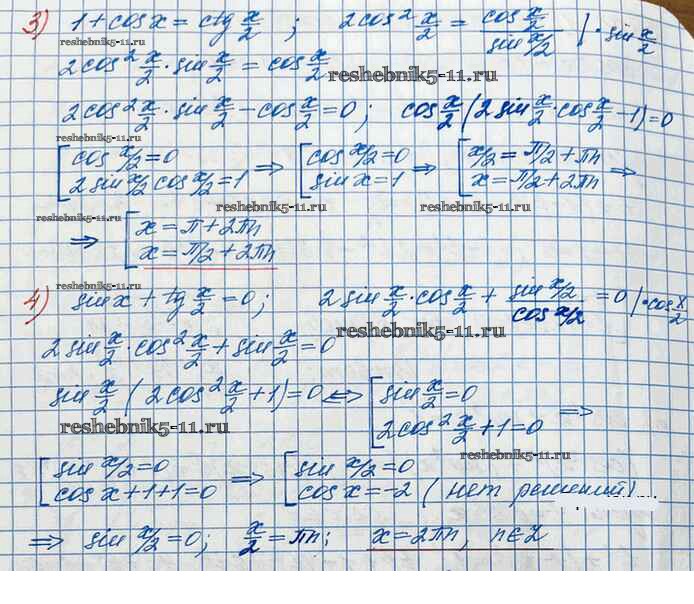 3) 1 + cos x = ctg x/2 ; 2cos² x/2 = cos x/2 / sin x/2 | · sin x/2
reshebnik5-11.ru
2cos² x/2 · sin x/2 = cos x/2
reshebnik5-11.ru
2cos² x/2 · sin x/2 - cos x/2 = 0 ; cos x/2 (2 sin x/2 · cos x/2 - 1) = 0
reshebnik5-11.ru
[ cos x/2 = 0 ⇒ [ cos x/2 = 0 ⇒ [ x/2 = π/2 + πn ⇒
2 sin x/2 cos x/2 = 1 sin x = 1 x = π/2 + 2πn
reshebnik5-11.ru reshebnik5-11.ru reshebnik5-11.ru
⇒ [ x = π + 2πn
x = π/2 + 2πn
reshebnik5-11.ru
4) sin x + tg x/2 = 0 ; 2 sin x/2 · cos x/2 + sin x/2 / cos x/2 = 0 | · cos x/2
reshebnik5-11.ru
2 sin x/2 · cos² x/2 + sin x/2 = 0
sin x/2 (2cos² x/2 + 1) = 0 ⇔ [ sin x/2 = 0
2cos² x/2 + 1 = 0 ⇒
reshebnik5-11.ru
reshebnik5-11.ru
[ sin x/2 = 0 ⇒ [ sin x/2 = 0
cos x + 1 + 1 = 0 cos x = -2 (нет решений)
⇒ sin x/2 = 0 ; x/2 = πn ; x = 2πn, n ∈ Z